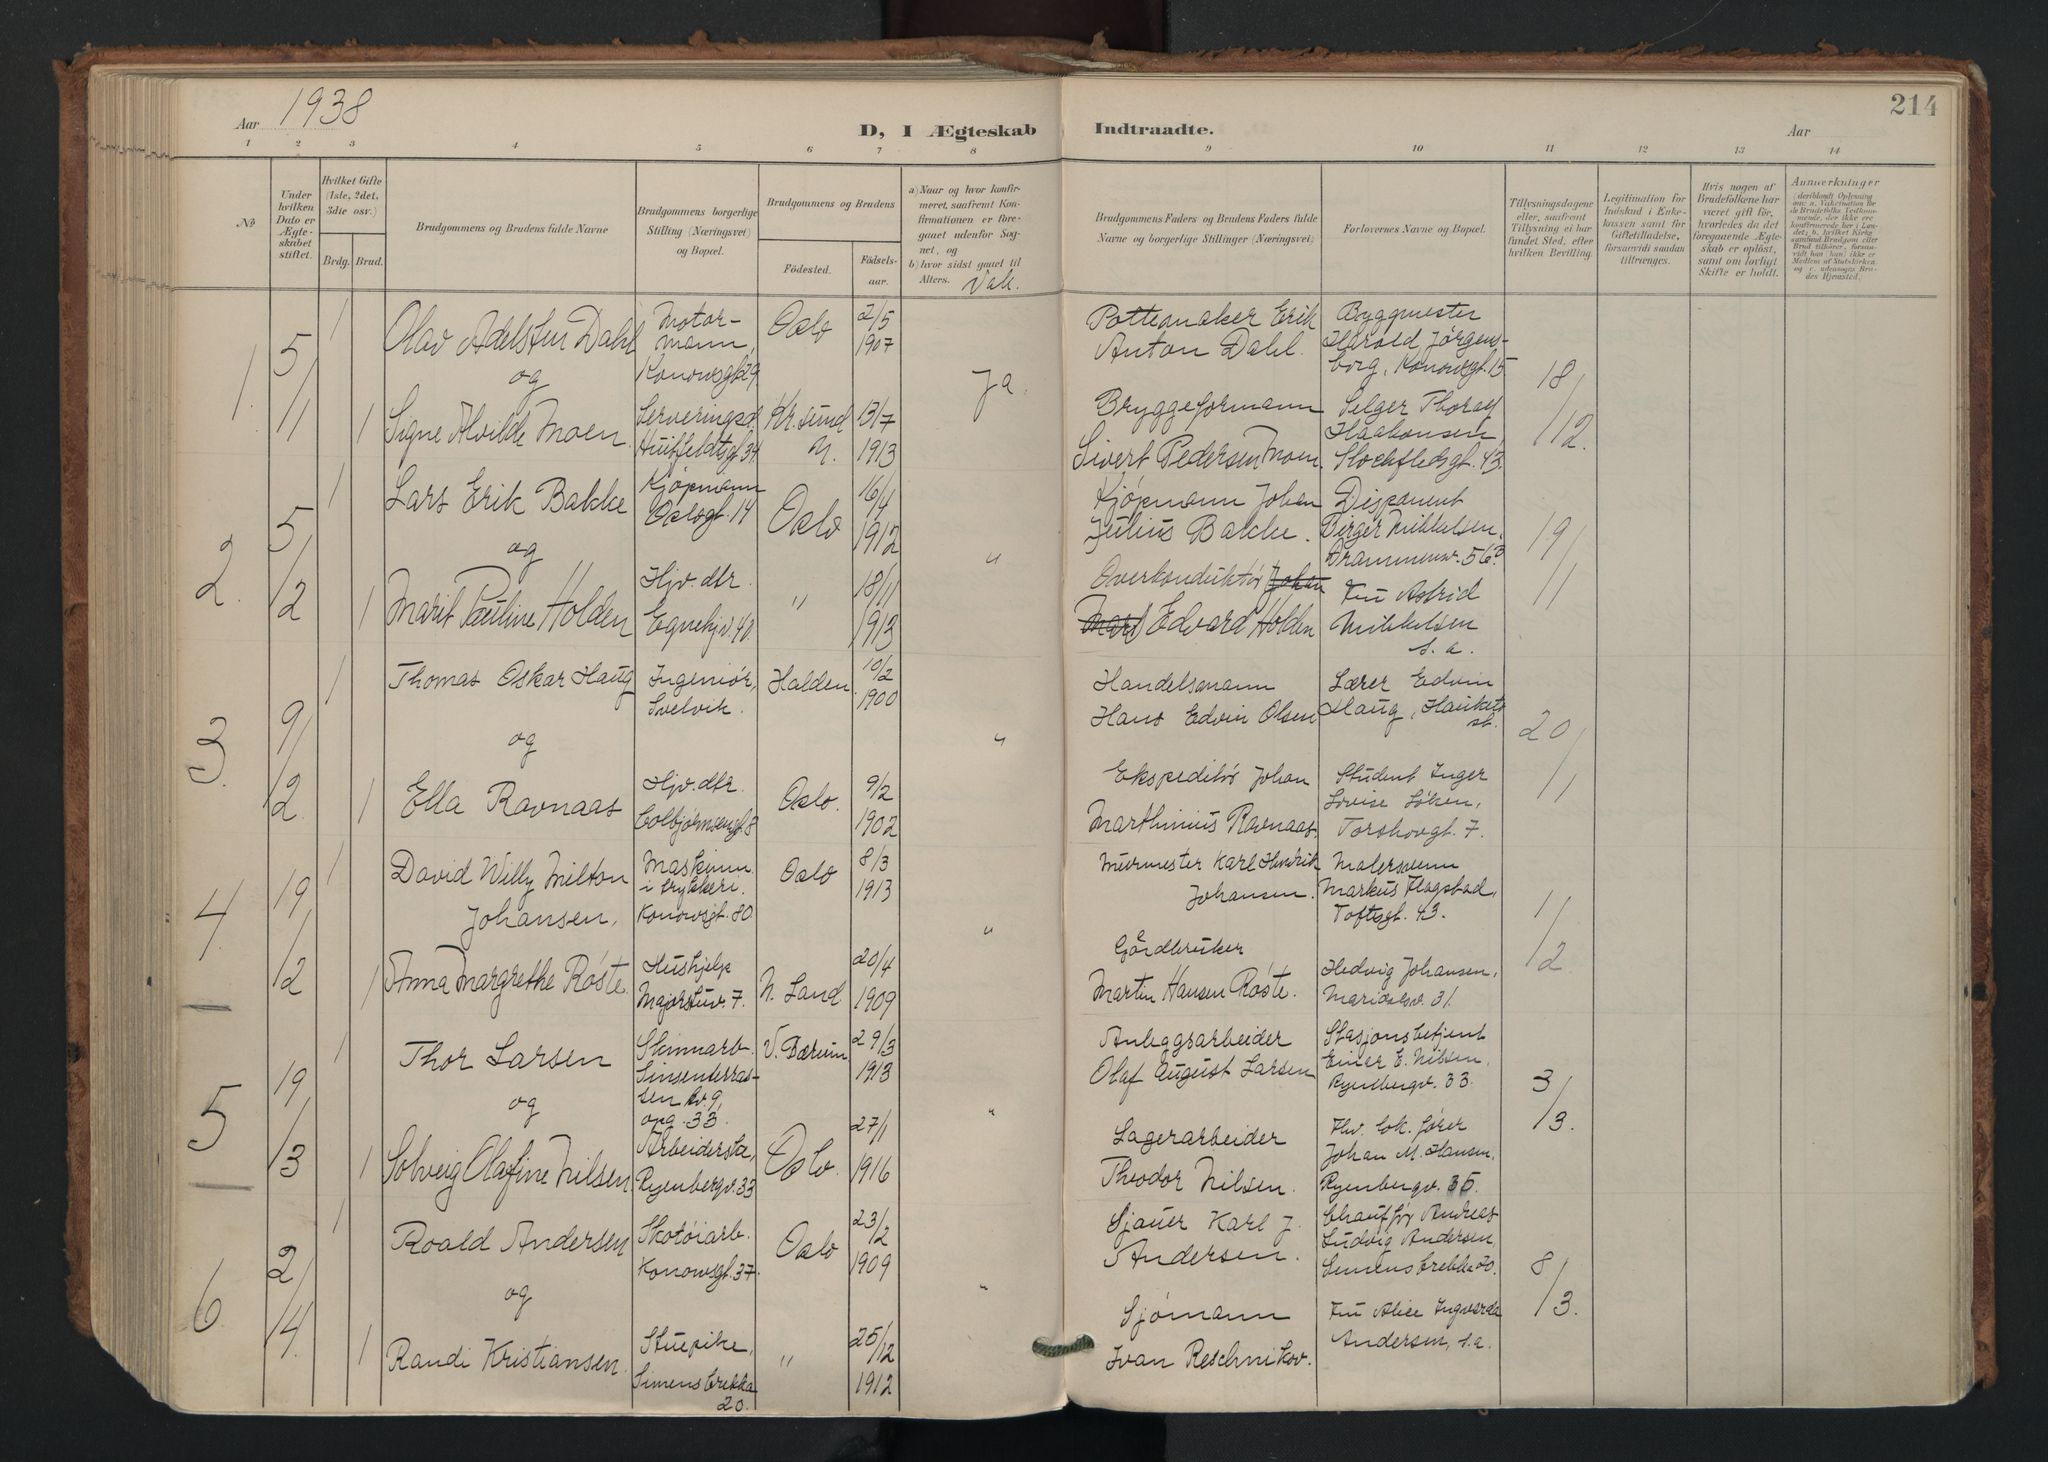 Aar 1938
D, I Ægteskab Indtraadte.
Aar
214
1 2 3 4 5 6 7 8 9 10 11 12 13 14
№
Under hvilken Dato er Ægteskabet stiftet.
Hvilket Gifte (1ste, 2det, 3die osv.)
Brdg. Brud.
Brudgommens og Brudens fulde Navne
Brudgommens borgerlige Stilling (Næringsvei) og Bopæl.
Brudgommens og Brudens
Födested.
Födselsaar.
a) Naar og hvor konfirmeret, saafremt Konfirmationen er foregaaet udenfor Sognet, og
b) hvor sidst gaaet til Alters.
Vak.
Brudgommens Faders og Brudens Faders fulde Navne og borgerlige Stillinger (Næringsvei)
Forlovernes Navne og Bopæl.
Tillysningsdagene eller, saafremt Tillysning ei har fundet Sted, efter hvilken Bevilling.
Legitimation for Indskud i Enkekassen samt for Giftetilladelse, forsaavidt saadan tiltrænges.
Hvis nogen af Brudefolkene har været gift för, hvorledes da det foregaaende Ægteskab er oplöst, samt om lovligt Skifte er holdt.
Anmærkninger
(deriblandt Oplysning om: a. Vakcination for de Brudefolks Vedkommende, der ikke ere konfirmerede her i Landet; b. hvilket Kirkesamfund Brudgom eller Brud tilhörer, forsaavidt han (hun) ikke er Medlem af Statskirken, og c. udensogns Brudes Hjemsted.
1. 5/1
1 Olav Adelsten Dahl
og
1 Signe Alvilde Moen.
Motormann, Konowsgt. 29
Serveringsd. Huitfeldtsgt. 34.
Oslo 2/5 1907
Kr.sund N. 13/7 1913
Ja.
Pottemaker Erik Anton Dahl.
Bryggeformann Sivert Pedersen Moen.
Byggmester Harald Jørgensborg, Konowsgt. 15.
Selger Thoralf Haakonsen, Stockfletsgt. 43.
18/12.
2. 5/2
1 Lars Erik Bakke
og
1 Marit Pauline Holden
Kjøpmann Oslogt. 14
Hjv. dtr. Egnehjv. 40
Oslo 16/4 1912
" 18/11 1913
"
Kjøpmann Johan Julius Bakke.
Overkonduktør Johan Karl Edvard Holden
Disponent Birger Mikkelsen. Drammensv. 56 B.
Fru Astrid Mikkelsen s. a.
19/1
3. 9/2
1 Thomas Oskar Haug
og
1 Ella Ravnaas
Ingeniør, Svelvik.
Hjv. dtr. Colbjørnsensgt. 8
Halden 10/2 1900
Oslo. 9/2 1902
"
Handelsmann Hans Edvin Olsen
Ekspeditør Johan Marthinius Ravnaas.
Lærer Edvin Haug,
Student Inger Lovise Løken, Torshovgt. 7.
20/1
4. 19/2
1 David Willy Milton Johansen,
1 Anna Margrethe Røste.
Maskinm. i trykkeri. Konowsgt. 80
Hushjelp Majorstuv. 7.
Oslo 8/3 1913
N. Land 20/4 1909
"
Murmester Karl Hendrik Johansen.
Gårdbruker Marten Hansen Røste.
Malersvenn Markus Flagstad, Toftesgt. 43.
Hedvig Johansen, Maridalsv. 31.
1/2
5 19/3
1 Thor Larsen
og
1 Solveig Olafine Nilsen
Skinnarb. Sinsenterrassen kv. 9, opg. 33.
Arbeiderske, Ryenbergv. 33
V. Bærum 29/3 1913
Oslo. 27/1 1916
"
Anleggsarbeider Olaf August Larsen
Lagerarbeider Theodor Nilsen.
Stasjonsbetjent Einer E. Nilsen, Ryenbergv. 33.
Fhv. lok. fører Johan M. Hansen, Ryenbergv. 35.
3/3.
6. 2/4.
1 Roald Andersen
og
1 Randi Kristiansen.
Skotøiarb. Konowsgt. 37.
Stuepike, Simensbrekka 20.
Oslo 23/2 1909
" 25/12 1912
"
Sjauer Karl J. Andersen.
Sjømann Ivan Reschnikov.
Chauffør Andreas Ludvig Andersen, Simensbrekka 20.
Fru Alice Ingvarda Andersen, s. a.
8/3.